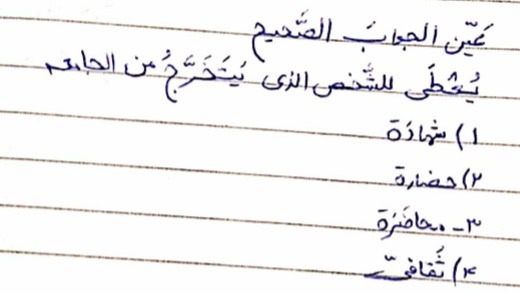 عَيِّن الجوابَ الصَّحيح
يُعْطَى للشَّخص الذی يَتَخَرَّجُ من الجامعه
۱) شهادَة
۲) حضارة
۳- محاضَرَة
۴) ثَقافیّ